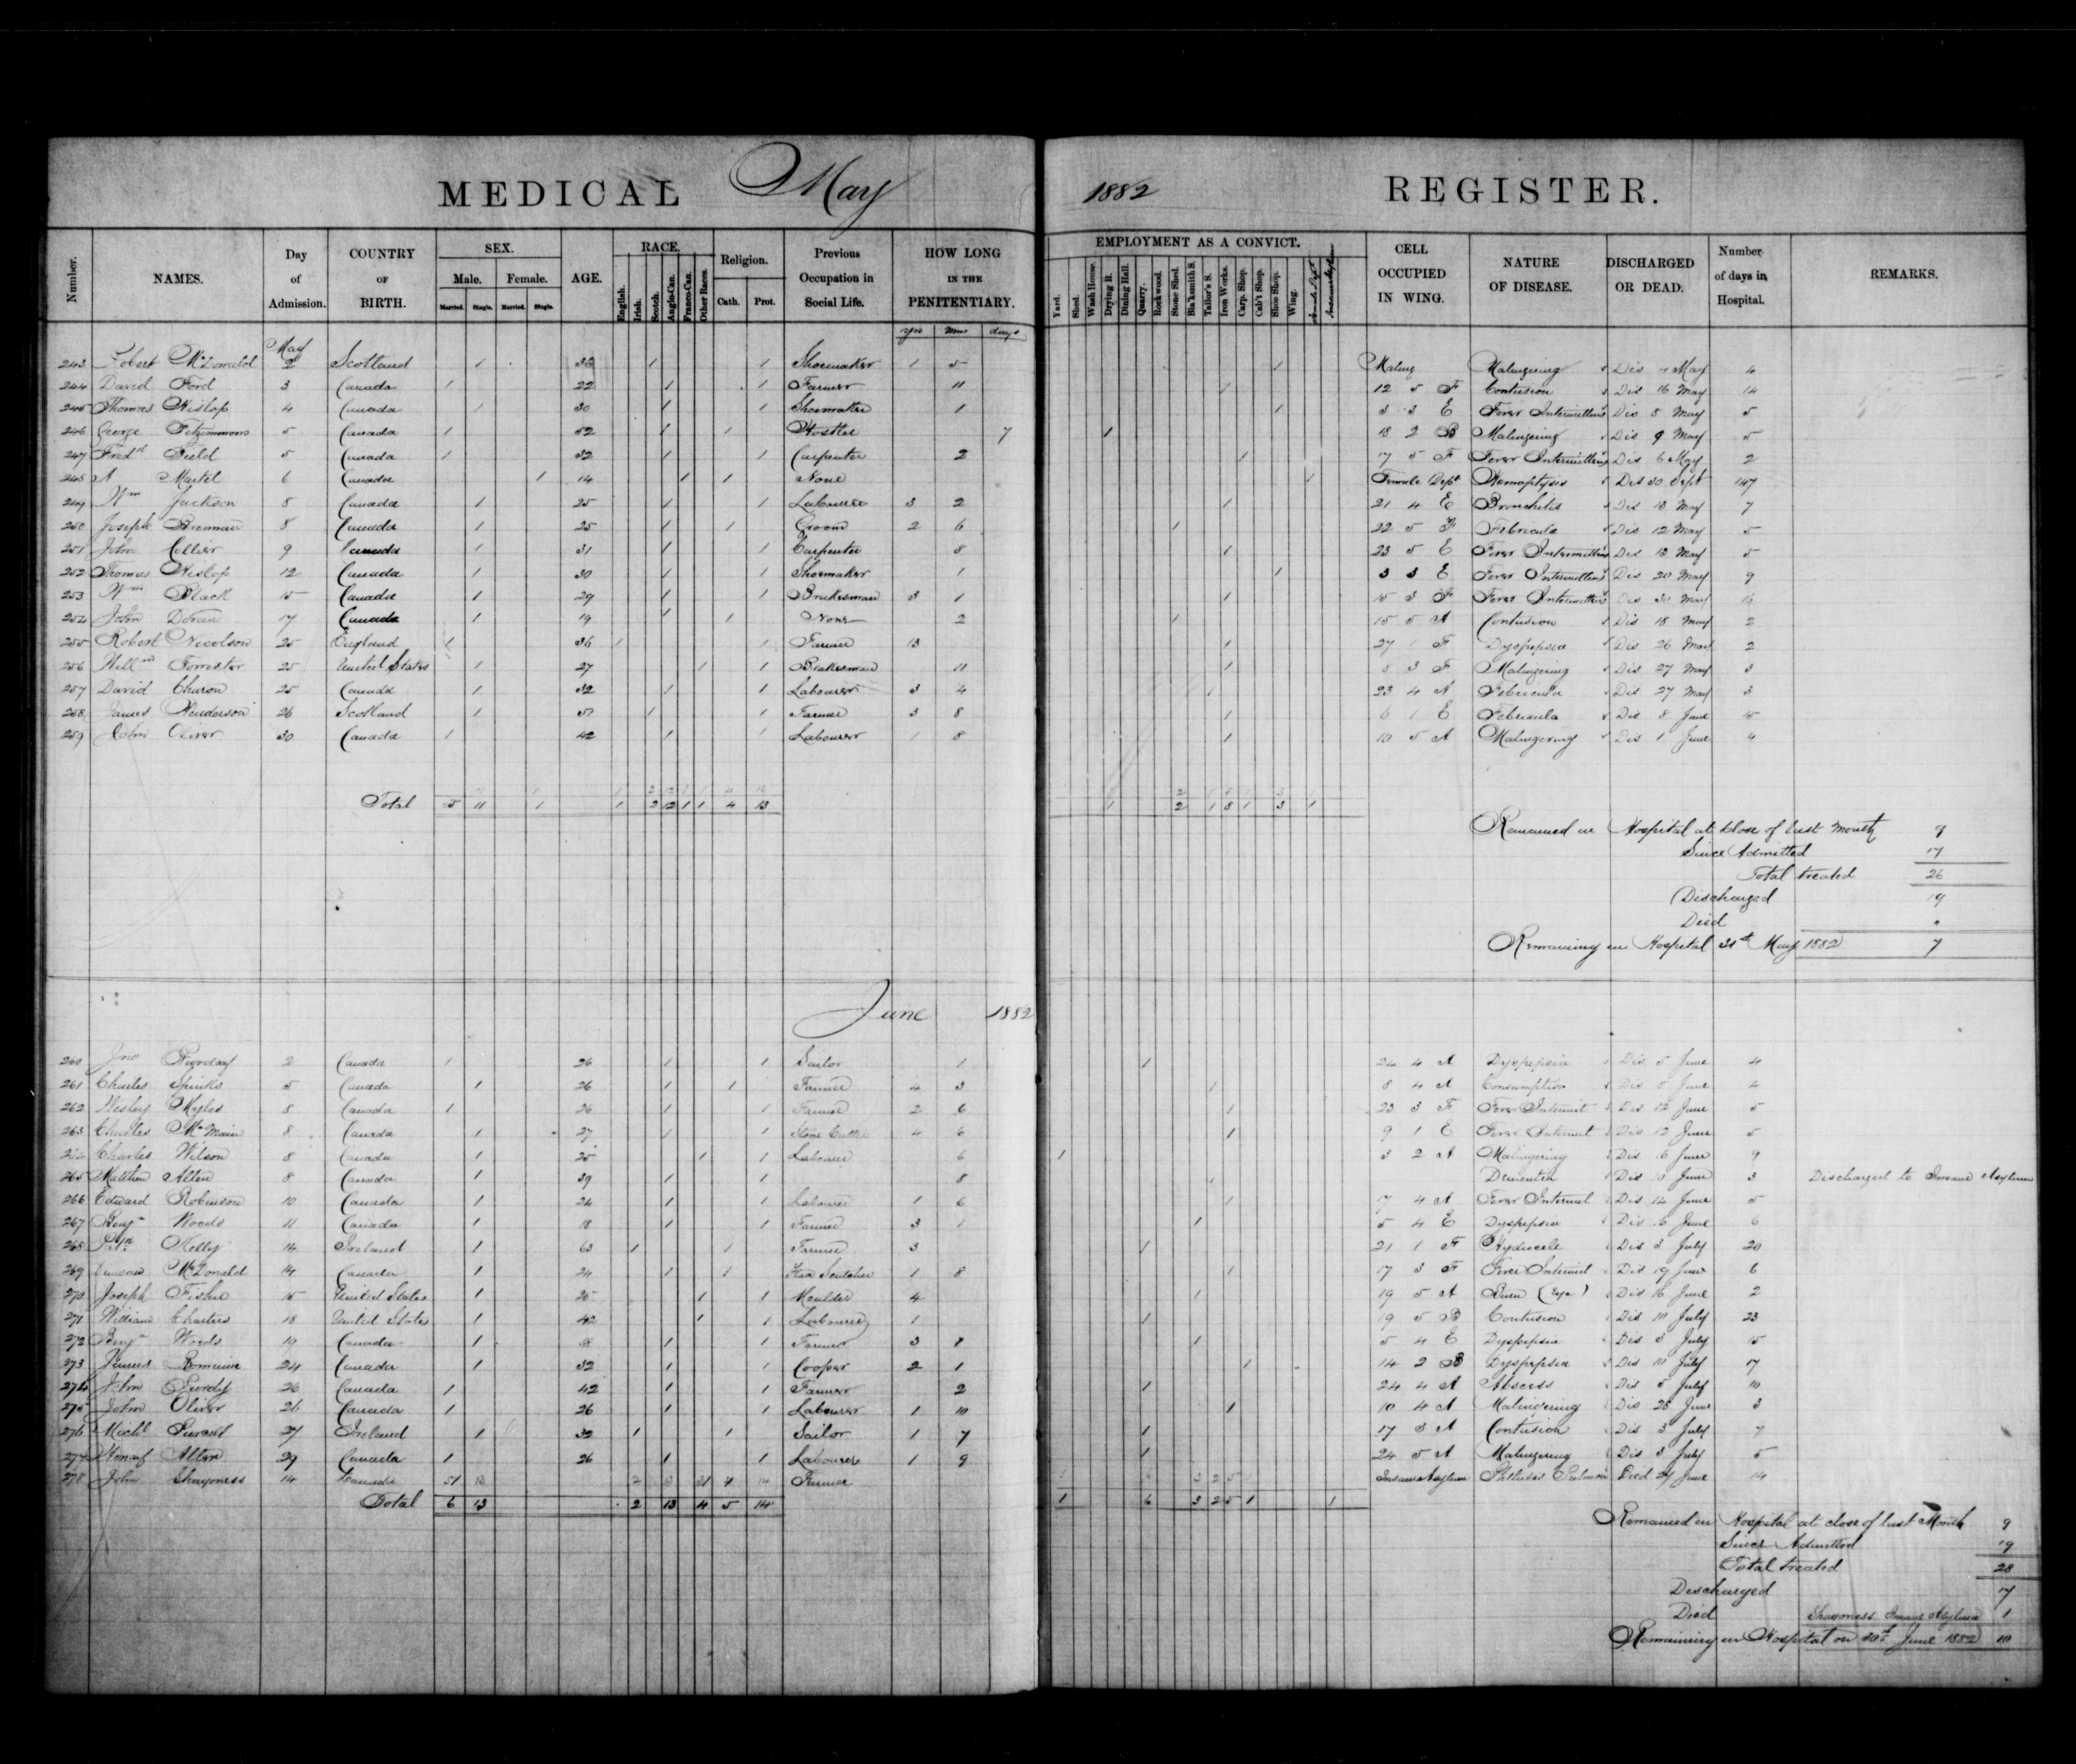 MEDICAL May 1882 REGISTER.
Number. NAMES. Day of Admission. COUNTRY OF BIRTH. SEX. Male. Married. Single. Female. Married. Single. AGE. RACE. English. Irish. Scotch. Anglo-Can. Franco-Can. Other Races. Religion. Cath. Prot. Previous Occupation in Social Life. HOW LONG IN THE PENITENTIARY. EMPLOYMENT AS A CONVICT. Yard. Shed. Wash House. Drying R. Dining Hall. Quarry. Rockwood. Stone Shed. Bla'ksmith S. Tailor's S. Iron Works. Carp. Shop. Cab't Shop. Shoe Shop. Wing. Female Dept Insane Asylum CELL OCCUPIED IN WING. NATURE OF DISEASE. DISCHARGED OR DEAD. Number of days in Hospital. REMARKS.
yrs mns days
May
243 Robert McDonald 2 Scotland 1 1 1 Shoemaker 1 5 1 Maling Malingering Dis 4 May 4
244 David Ford 3 Canada 1 22 1 1 Farmer 11 1 12 5 F Contusion Dis 16 May 14
245 Thomas Hislop 4 Canada 1 30 1 1 Shoemaker 1 1 3 3 E Fever Intermittens Dis 8 May 5
246 George Fitzimmons 5 Canada 1 52 1 1 Hostler 7 1 18 2 B Malingering Dis 9 May 5
247 Fredk Field 5 Canada 1 32 1 1 Carpenter 2 1 17 5 F Fever Intermittens Dis 6 May 2
248 A Martel 6 Canada 1 14 1 1 None 1 Female Dept Hemoptysis Dis 30 Sept 147
249 Wm Jackson 8 Canada 1 25 1 1 Labourer 3 2 1 21 4 E Bronchitis Dis 13 May 7
250 Joseph Brennan 8 Canada 1 25 1 1 Groom 2 6 1 22 5 F Febricula Dis 12 May 5
251 John Collier 9 Canada 1 31 1 1 Carpenter 8 1 23 5 E Fever Intermittens Dis 13 May 5
252 Thomas Hislop 12 Canada 1 30 1 1 Shoemaker 1 1 3 3 E Fever Intermittens Dis 20 May 9
253 Wm Black 15 Canada 1 29 1 1 Brakesman 3 1 1 15 3 F Fever Intermittens Dis 30 May 16
254 John Doran 17 Canada 1 19 1 1 None 2 1 15 5 A Contusion Dis 18 May 2
255 Robert Nicolson 25 England 1 36 1 1 Farmer 13 1 27 1 F Dyspepsia Dis 26 May 2
256 Forrester 25 United States 1 27 1 1 Brakesman 11 1 8 3 F Malingering Dis 27 May 3
257 David Charon 25 Canada 1 32 1 1 Labourer 3 4 1 23 4 A Febricula Dis 27 May 3
258 James Henderson 26 Scotland 1 1 1 Farmer 3 8 1 6 1 E Febricula Dis 8 June 15
259 John Oliver 30 Canada 1 42 1 1 Labourer 1 8 1 10 5 A Malingering Dis 1 June 4
Total 5 11 1 1 2 12 1 1 4 13 1 2 1 8 1 3 1
Remained in Hospital at close of last month 9
Since Admitted 17
Total treated 26
Discharged 19
Died
Remaining in Hospital 31st May 1882 7
June 1882
260 Jno 2 Canada 1 26 1 1 Sailor 1 1 24 4 A Dyspepsia Dis 5 June 4
261 Charles Spinks 5 Canada 1 26 1 1 Farmer 4 3 1 8 4 A Consumption Dis 8 June 4
262 Wesley Myles 8 Canada 1 26 1 1 Farmer 2 6 1 23 3 F Fever Intermit Dis 12 June 5
263 Charles McMain 8 Canada 1 27 1 1 Stone Cutter 4 6 1 9 1 E Fever Intermit Dis 12 June 5
264 Charles Wilson 8 Canada 1 25 1 1 Labourer 6 1 3 2 A Malingering Dis 16 June 9
265 Matthew Allen 8 Canada 1 39 1 1 8 1 Dementia Dis 10 June 3 Discharged to Insane Asylum
266 Edward Robinson 10 Canada 1 24 1 1 Labourer 1 6 1 17 4 A Fever Intermit Dis 14 June 5
267 Benjn Woods 11 Canada 1 18 1 1 Farmer 3 1 1 5 4 E Dyspepsia Dis 16 June 6
268 Kelly 14 Ireland 1 63 1 1 Farmer 3 1 21 1 F Hydrocele Dis 3 July 20
269 Duncan McDonald 14 Canada 1 24 1 1 Flax Scutcher 1 8 1 17 3 F Fever Intermit Dis 19 June 6
270 Joseph Fisher 15 United States 1 25 1 1 Moulder 4 1 19 5 A Burn (Eye) Dis 16 June 2
271 William Charters 18 United States 1 42 1 1 Labourer 1 1 19 5 B Contusion Dis 10 July 23
272 Benjn Woods 19 Canada 1 18 1 1 Farmer 3 1 1 5 4 E Dyspepsia Dis 3 July 15
273 James Romaine 24 Canada 1 32 1 1 Cooper 2 1 1 14 2 B Dyspepsia Dis 10 July 17
274 John Purdy 26 Canada 1 42 1 1 Farmer 2 1 24 4 A Abscess Dis 5 July 10
275 John Oliver 26 Canada 1 26 1 1 Labourer 1 10 1 10 4 A Malingering Dis 28 June 3
276 Michl 27 Ireland 1 32 1 1 Sailor 1 7 1 17 3 A Contusion Dis 3 July 7
277 Allen 29 Canada 1 26 1 1 Labourer 1 9 1 24 5 A Malingering Dis 3 July 5
278 John Shagoness 14 Canada Farmer Insane Asylum Phthisis Pulmon Died 27 June 14
Total 6 13 2 13 4 5 14 1 6 3 2 5 1 1
Remained in Hospital at close of last Month 9
Since Admitted 19
Total treated 28
Discharged 17
Died Shagoness Insane Asylum 1
Remaining in Hospital on 30th June 1882 10